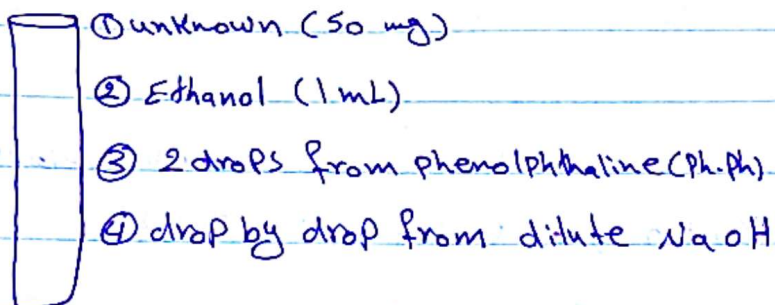 ① unknown (50 mg)
② Ethanol (1 mL)
③ 2 drops from phenolphthaline (Ph.ph)
④ drop by drop from dilute NaOH